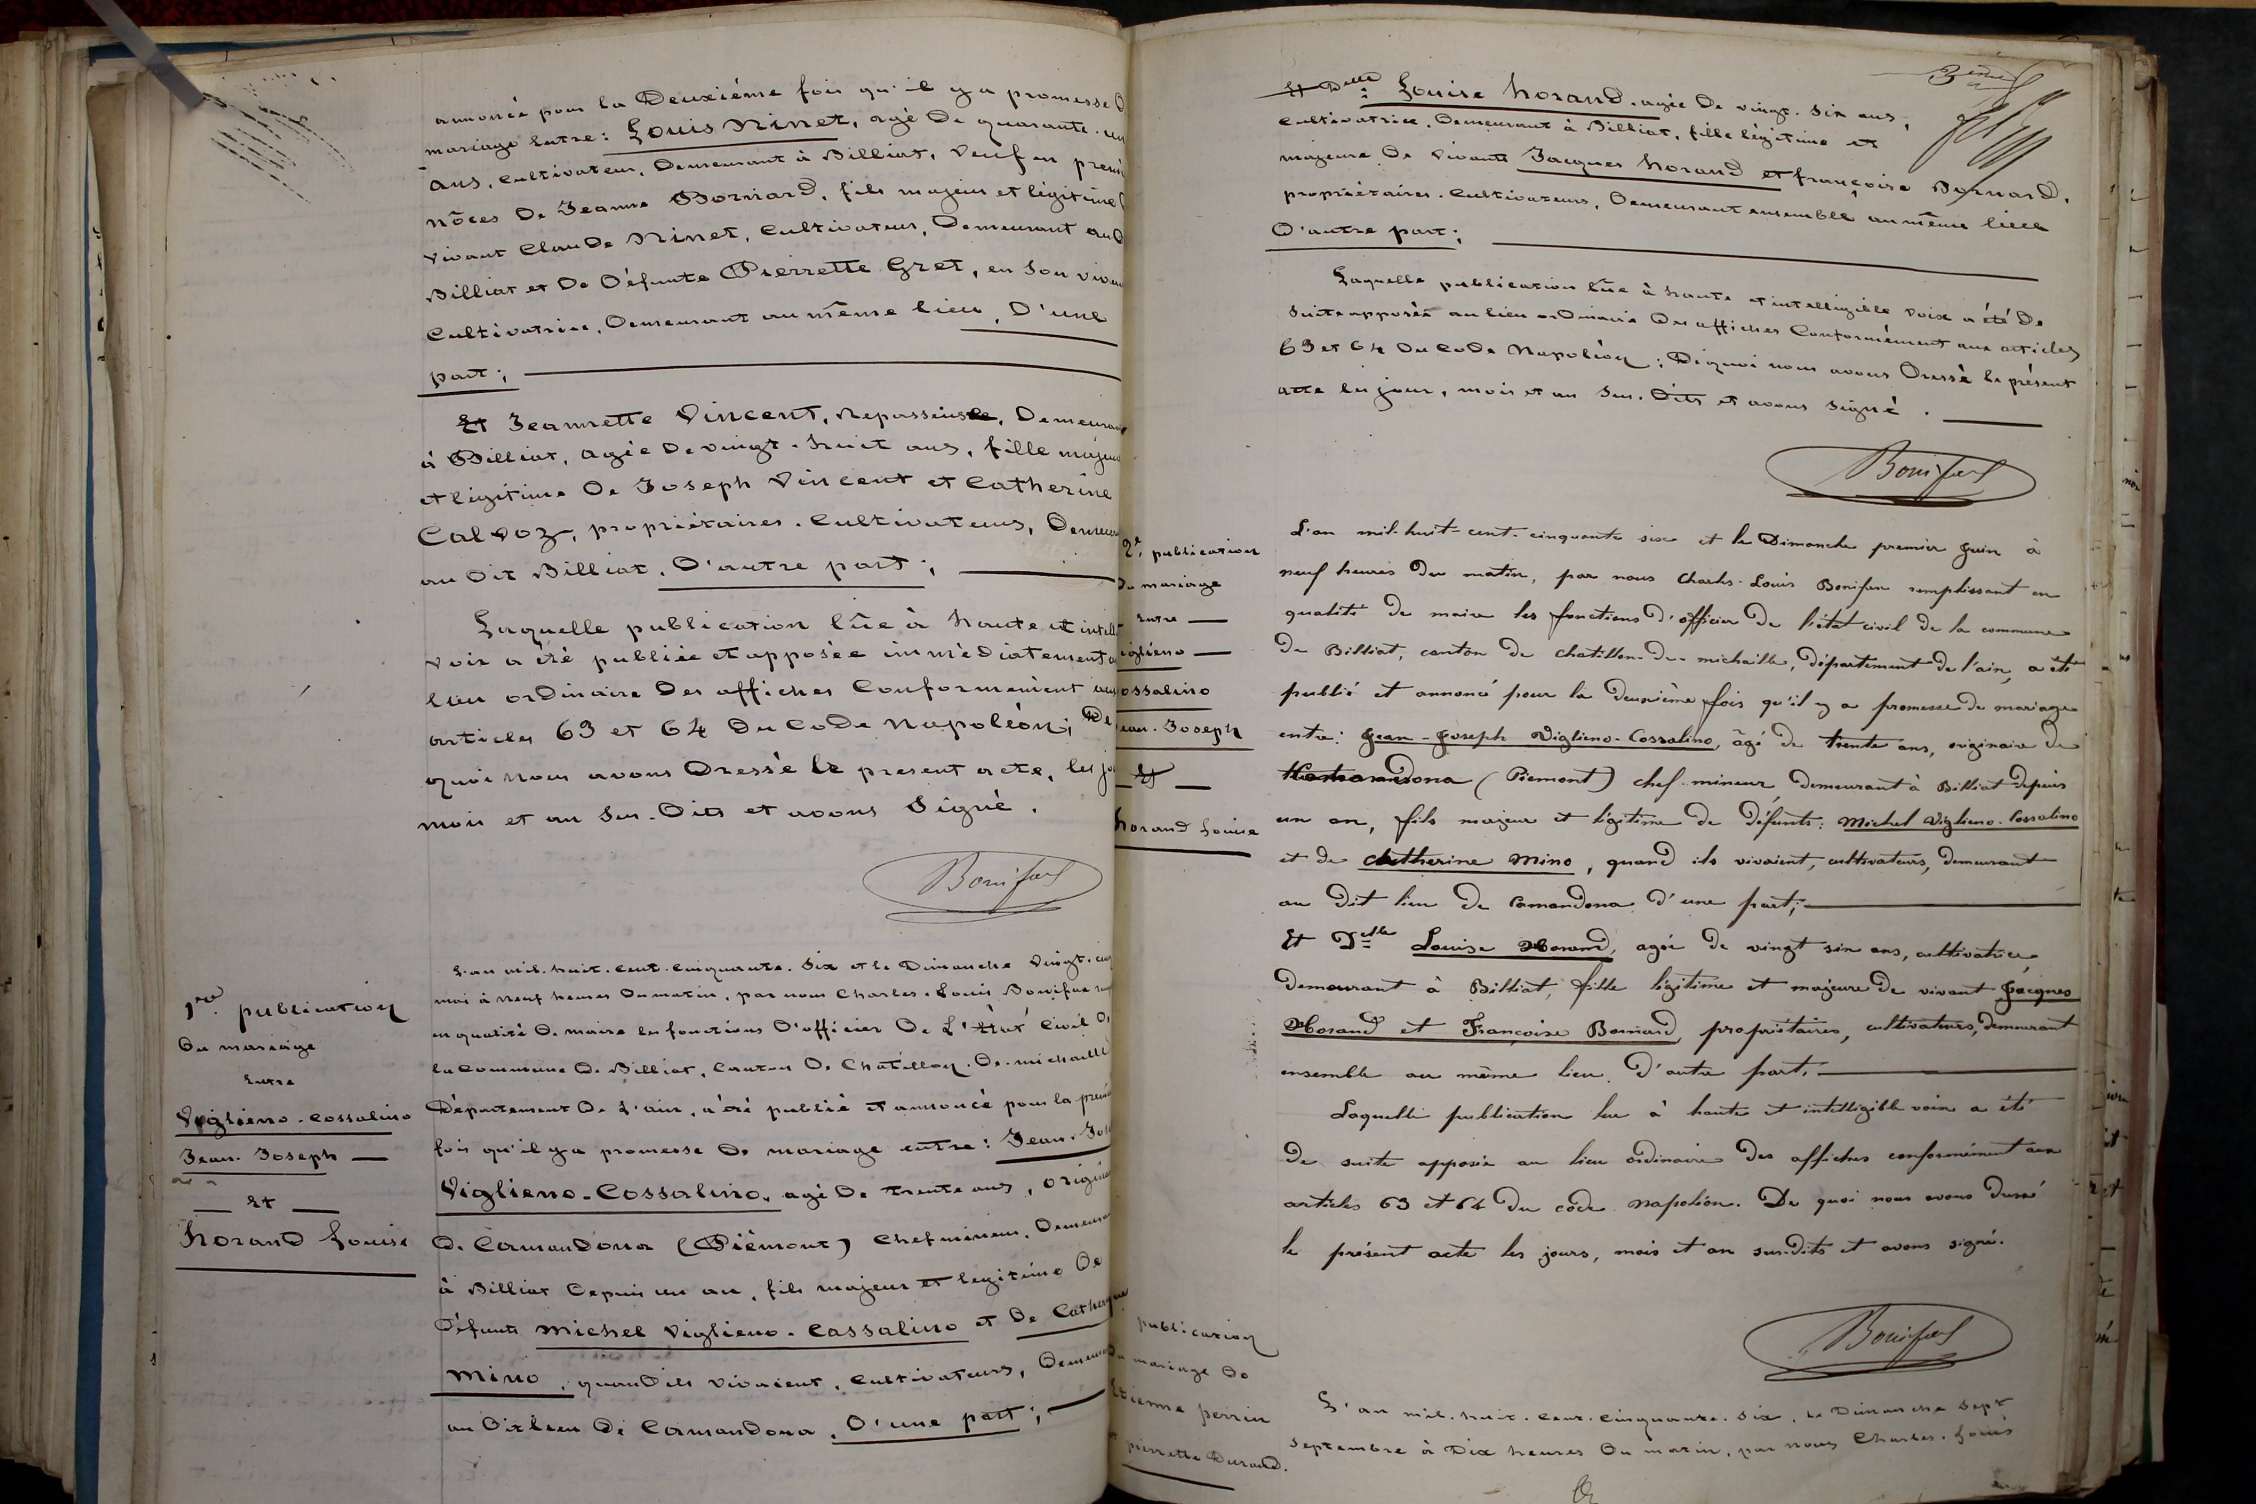 annoncé pour la Deuxiéme fois qu'il y a promesse
mariage Entre : Louis Ninet, agé De quarante. un
ans, Cultivateur, Demeurant à Billiat, veuf en prem
nôces De Jeanne Bornard, fils majeur et légitime
vivant Claude Ninet, Cultivateur, Demeurant au
Billiat et De Défunte Pierrette Gret, en Son viva
Cultivatrice, Demeurant au même lieu, D'une
part ;
Et Jeannette Vincent, Repasseuse, Demeuran
à Billiat, agée De vingt. huit ans, fille majeu
et légitime De Joseph Vincent et Catherine
Calvoz, propriétaires. Cultivateurs, Demeur
au Dit Billiat, D'autre part ;
Laquelle publication lûe à haute et intell
voix a été publiée et apposée immédiatement a
lieu ordinaire Des affiches Conformément aux
articles 63 et 64 Du Code Napoléon ; De
quoi nous avons Dressé le présent acte, les jo
mois et an Sus-Dits et avons Signé.
Bonifas
1re publication
Du mariage
Entre
Viglieno-Cossalino
Jean-Joseph
Et
Norand Louise
L'an mil. huit. cent. Cinquante. Six et le Dimanche Vingt. cin
mai à neuf heures Du matin, par nous Charles-Louis Bonifas
en qualité De maire les fonctions D'officier De L'État Civil D
la Commune De Billiat, Canton De Châtillon-De-michaille
Département De L'ain, a été publié et annoncé pour la premi
fois qu'il y a promesse De mariage entre : Jean-Jos
Viglieno-Cossalino, agé De trente ans, origin
De Camandona (Piémont) Chef mineur, Demeura
à Billiat Depuis un an, fils majeur et légitime De
Défunts Michel Viglieno-Cassalino et De Cather
Mino, quand ils vivaient, Cultivateurs, Demeura
au Dit lieu De Camandona, D'une part ;
Et Delle Louise Norand, agée De vingt. Six ans,
Cultivatrice, Demeurant à Billiat, fille légitime et
majeure De vivants Jacques Norand et françoise Bornard,
propriétaires. Cultivateurs, Demeurant ensemble au même lieu
D'autre part ;
Laquelle publication lûe à haute et intelligible voix a été De
Suite apposée au lieu ordinaire Des affiches Conformément aux articles
63 et 64 Du Code Napoléon ; De quoi nous avons Dressé le présent
acte les jour, mois et an Sus-Dits et avons Signé.
Bonifas
2e publication
De mariage
Entre
iglieno
ossalino
ean-Joseph
Et
Norand Louise
L'an mil-huit-cent-cinquante six et le Dimanche premier Juin à
neuf heures du matin, par nous Charles-Louis Bonifas remplissant en
qualité de maire les fonctions d'officier de l'état civil de la commune
de Billiat, canton de chatillon-de-michaille, département de l'ain, a été
publié et annoncé pour la deuxième fois qu'il y a promesse de mariage
entre : Jean-Joseph Viglieno-Cossalino, âgé de trente ans, originaire de
(Piemont) chef-mineur, demeurant à Billiat depuis
un an, fils majeur et légitime de défunts : Michel Viglieno-Cossalino
et de Catherine Mino, quand ils vivaient, cultivateurs, demeurant
au dit lieu de Camandona d'une part ;
Et Delle Louise Norand, agée de vingt six ans, cultivatrice
demeurant à Billiat, fille légitime et majeure de vivant Jacques
Norand et Françoise Bornard, propriétaires, cultivateurs, demeurant
ensemble au même lieu, d'autre part.
Laquelle publication lue à haute et intelligible voix a été
de suite apposée au lieu ordinaire des affiches conformément aux
articles 63 et 64 du côde napoléon. De quoi nous avons dressé
le présent acte les jours, mois et an sus-dits et avons signé.
Bonifas
publication
mariage De
Etienne perrin
pierrette Durand.
L'an mil. huit. Cent. Cinquante. Six, le Dimanche Sept
Septembre à Dix heures Du matin, par nous Charles-Louis